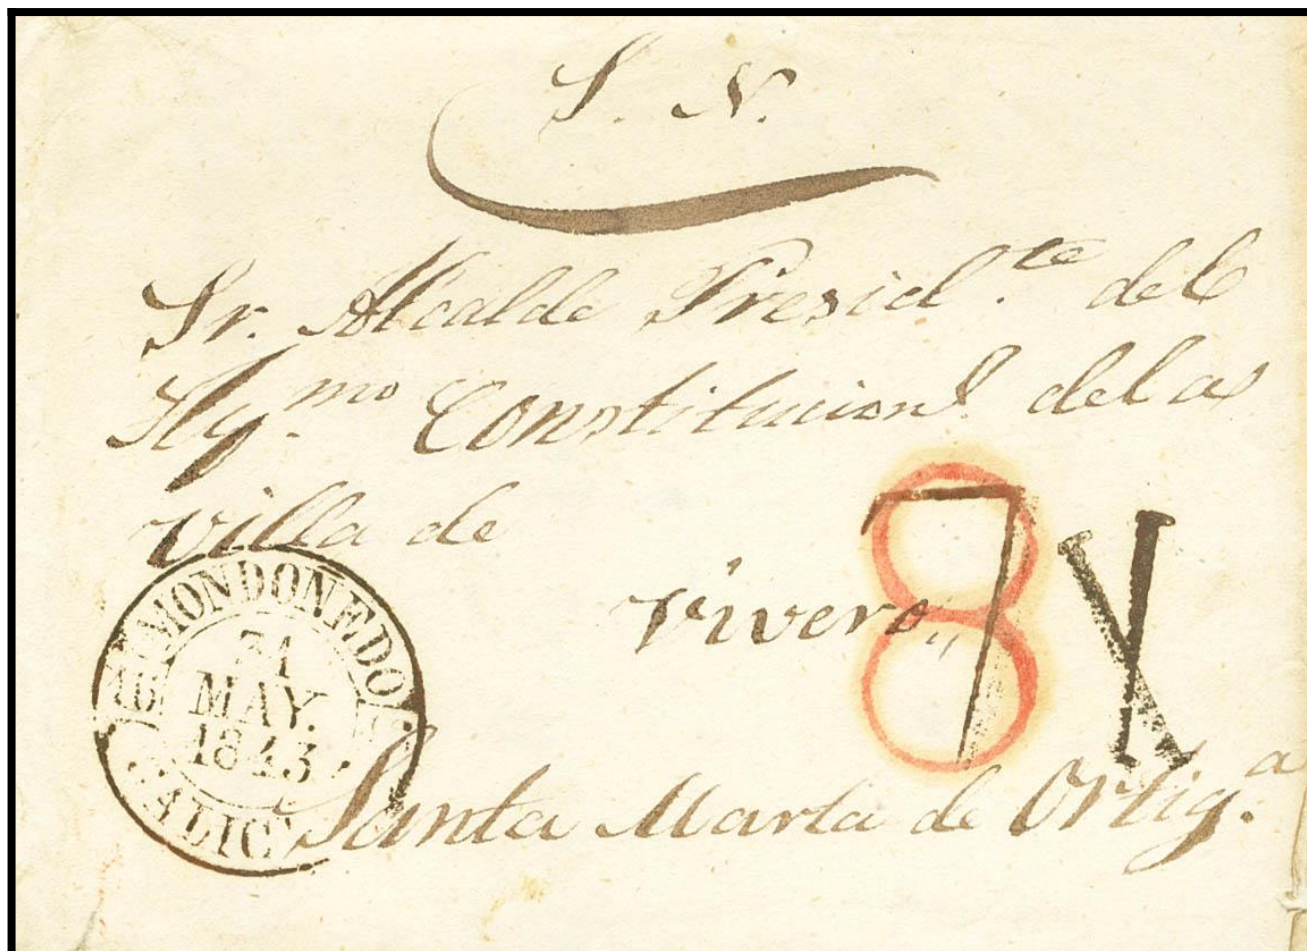 S. N.
Sr. Alcalde Presid.te del
Ay.mo Constitucion.l de la
villa de
Vivero,,
8
7
X
MONDOÑEDO
31
MAY.
1843
Santa Marta de Ortig.a